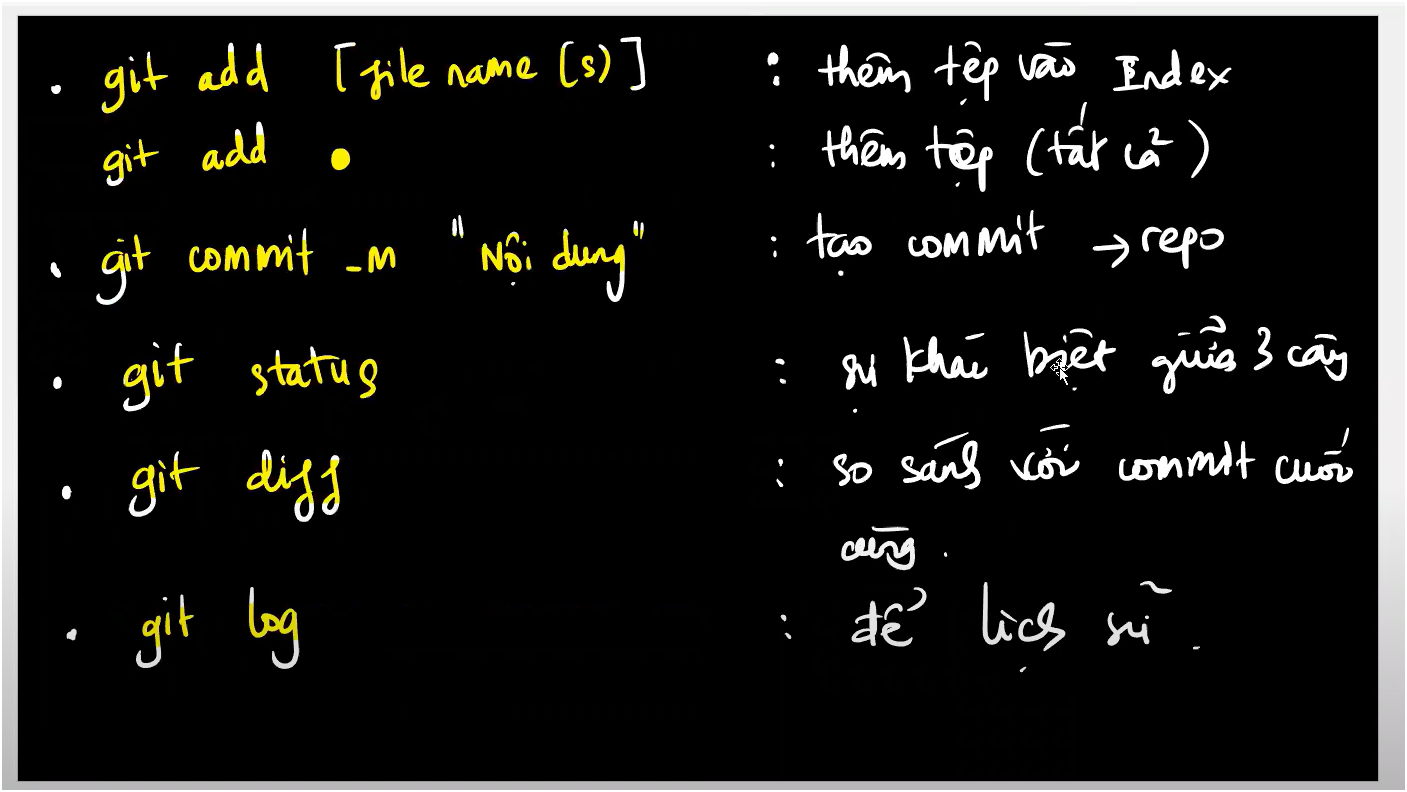 . git add [file name (s)] : thêm tệp vào Index
git add . : thêm tệp (tất cả)
. git commit -m "Nội dung" : tạo commit → repo
. git status : sự khác biệt giữa 3 cây
. git diff : so sánh với commit cuối
cùng.
. git log : để lịch sử.